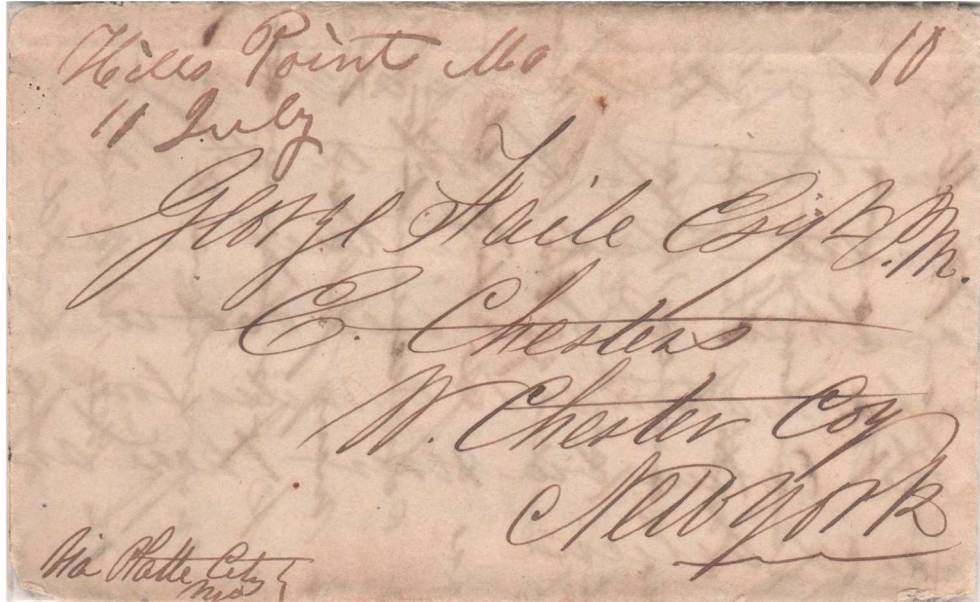 Hills Point Mo 10
11 July
George Faile Esqr P.M.
E. Chesters
W. Chester Coy
New York
Via Platte City
Mo